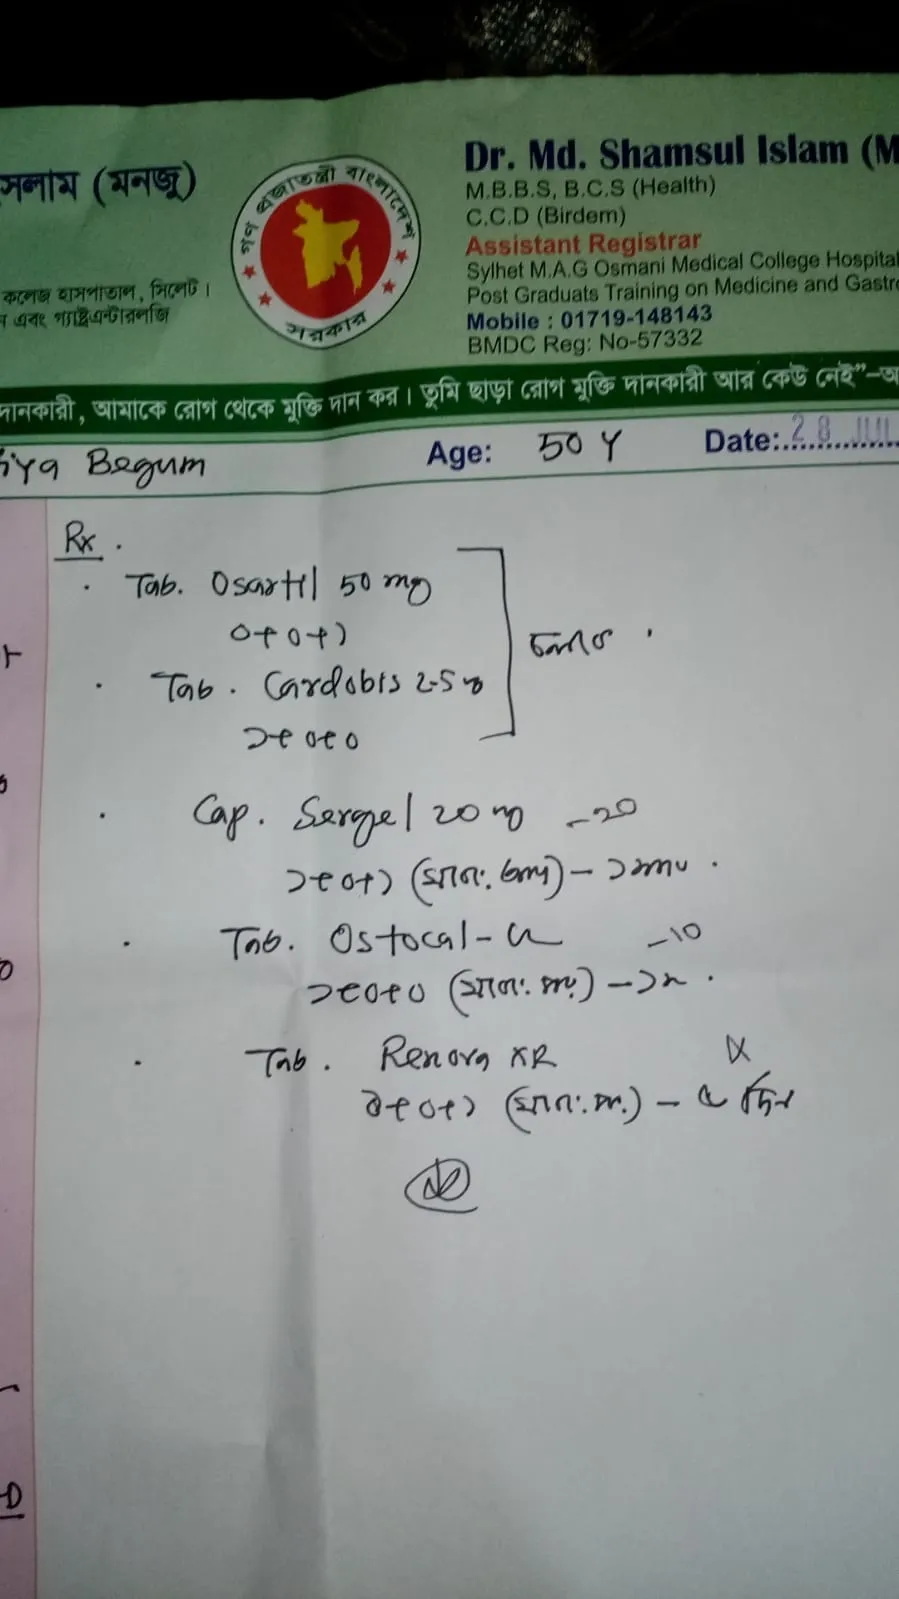 সলাম (মনজু)
গণ প্রজাতন্ত্রী বাংলাদেশ
সরকার
কলেজ হাসপাতাল, সিলেট।
এবং গ্যাষ্ট্রোএন্টারলজি
Dr. Md. Shamsul Islam (M
M.B.B.S, B.C.S (Health)
C.C.D (Birdem)
Assistant Registrar
Sylhet M.A.G Osmani Medical College Hospital
Post Graduats Training on Medicine and Gastr
Mobile : 01719-148143
BMDC Reg: No-57332
দানকারী, আমাকে রোগ থেকে মুক্তি দান কর। তুমি ছাড়া রোগ মুক্তি দানকারী আর কেউ নেই"-অ
Begum Age: 50 Y Date: 28 JUL
Rx.
Tab. Osartil 50 mg
০+০+১
Tab. Cardobis 2.5
১+০+০
চলবে
Cap. Sergel 20 mg -20
১+০+১
Tab. Ostocal- -10
১+০+০
Tab. Renova XR
০+০+১ - ৫ দিন